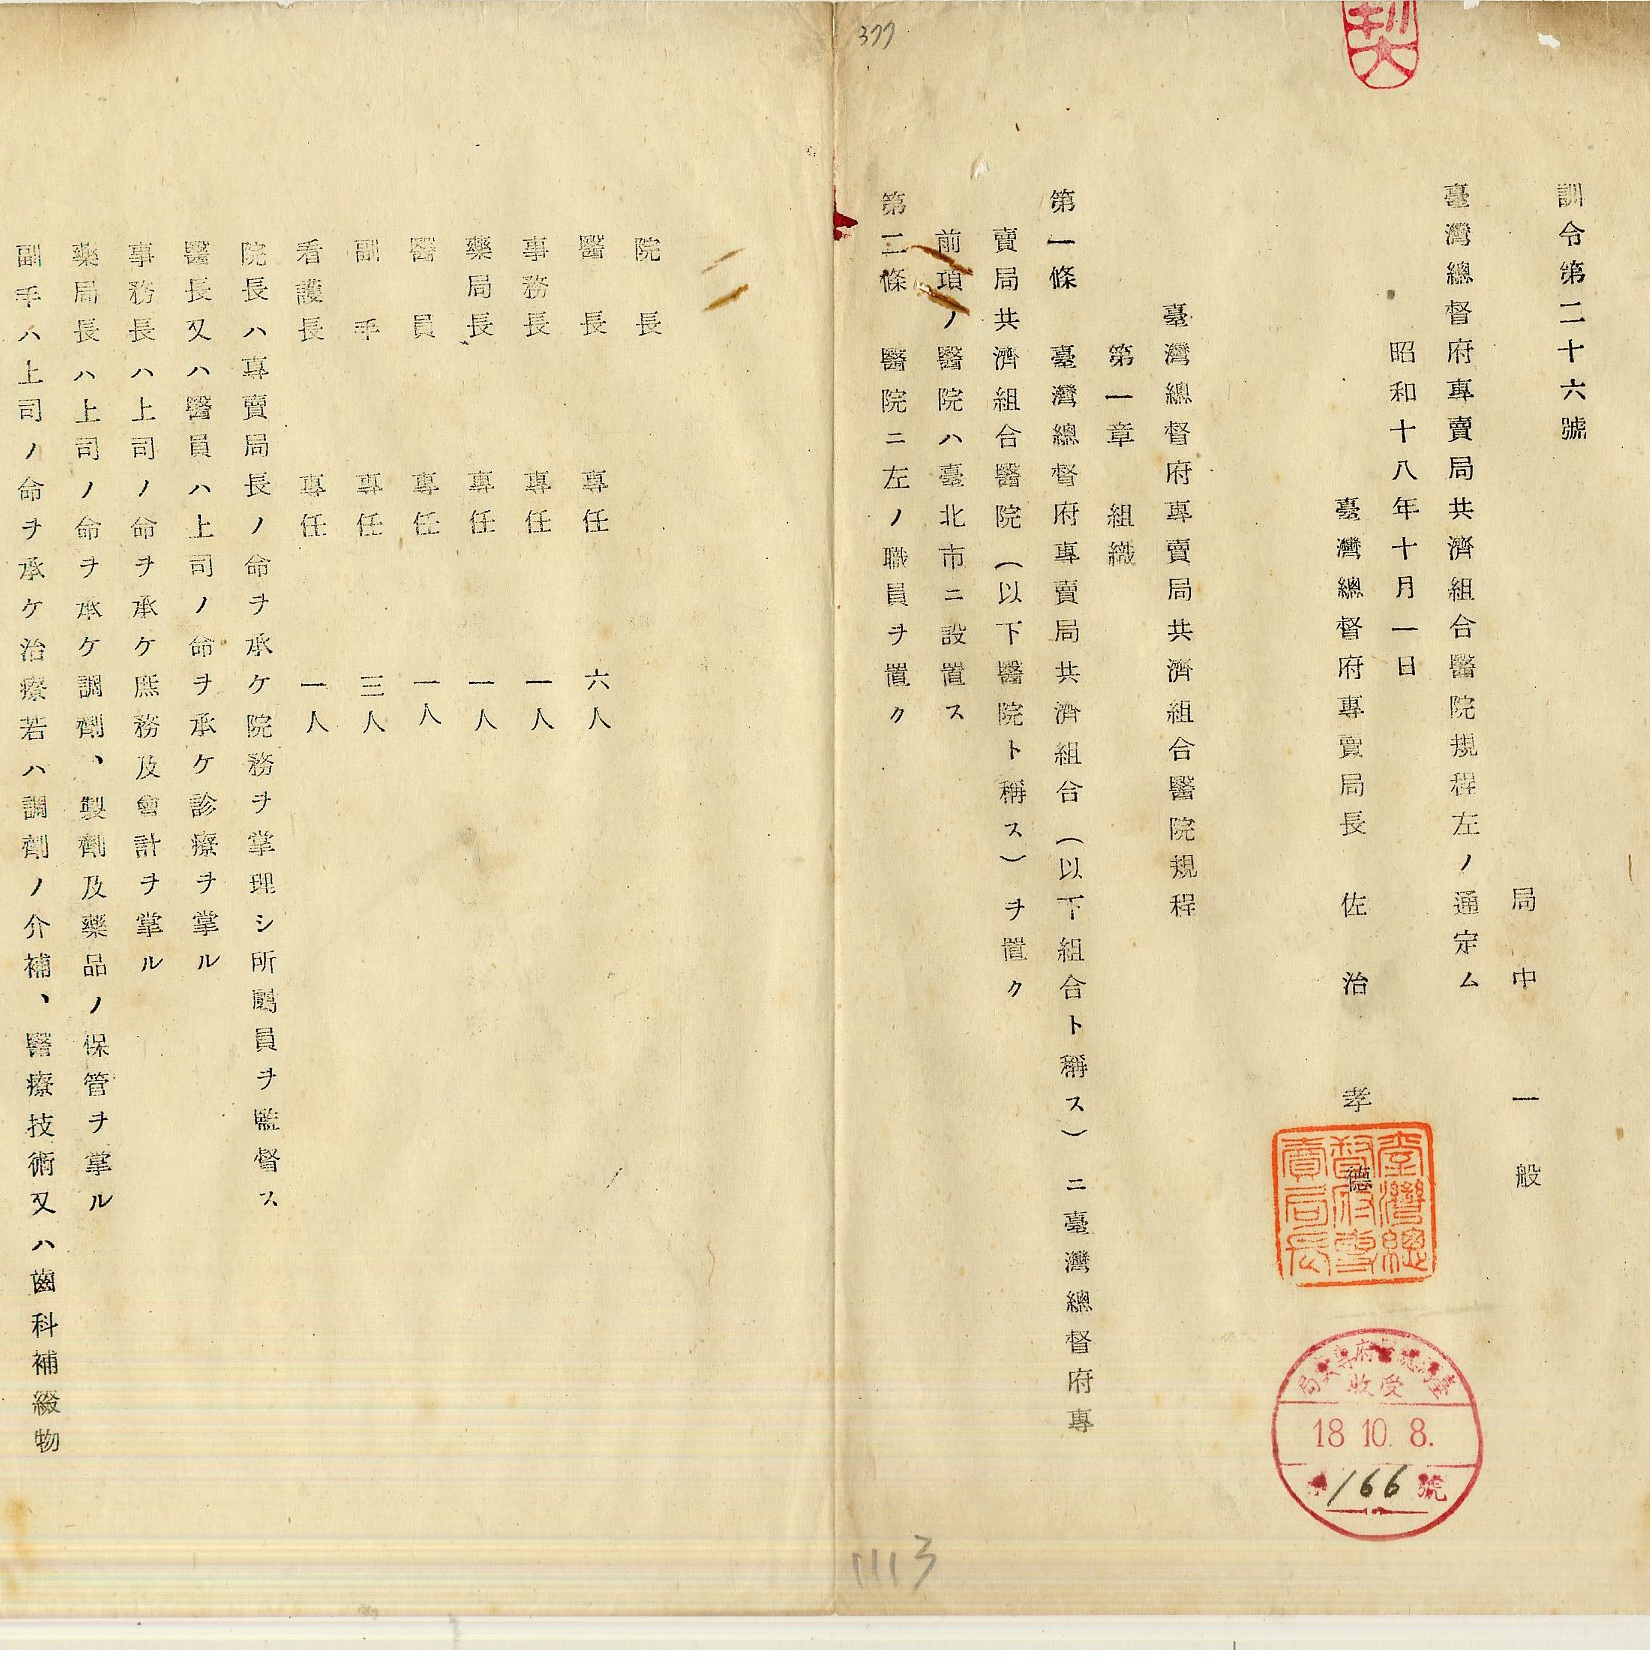 377
訓令第二十六號
局中一般
臺灣總督府專賣局共濟組合醫院規程左ノ通定ム
昭和十八年十月一日
臺灣總督府專賣局長 佐治孝德
臺灣總督府專賣局長
臺灣總督府專賣局
收受
18.10.8.
第166號
臺灣總督府專賣局共濟組合醫院規程
第一章 組織
第一條 臺灣總督府專賣局共濟組合(以下組合ト稱ス)ニ臺灣總督府專
賣局共濟組合醫院(以下醫院ト稱ス)ヲ置ク
前項ノ醫院ハ臺北市ニ設置ス
第二條 醫院ニ左ノ職員ヲ置ク
1113
院長
醫長 專任 六人
事務長 專任 一人
藥局長 專任 一人
醫員 專任 一人
副手 專任 三人
看護長 專任 一人
院長ハ專賣局長ノ命ヲ承ケ院務ヲ掌理シ所屬員ヲ監督ス
醫長又ハ醫員ハ上司ノ命ヲ承ケ診療ヲ掌ル
事務長ハ上司ノ命ヲ承ケ庶務及會計ヲ掌ル
藥局長ハ上司ノ命ヲ承ケ調劑、製劑及藥品ノ保管ヲ掌ル
副手ハ上司ノ命ヲ承ケ治療若ハ調劑ノ介補、醫療技術又ハ齒科補綴物